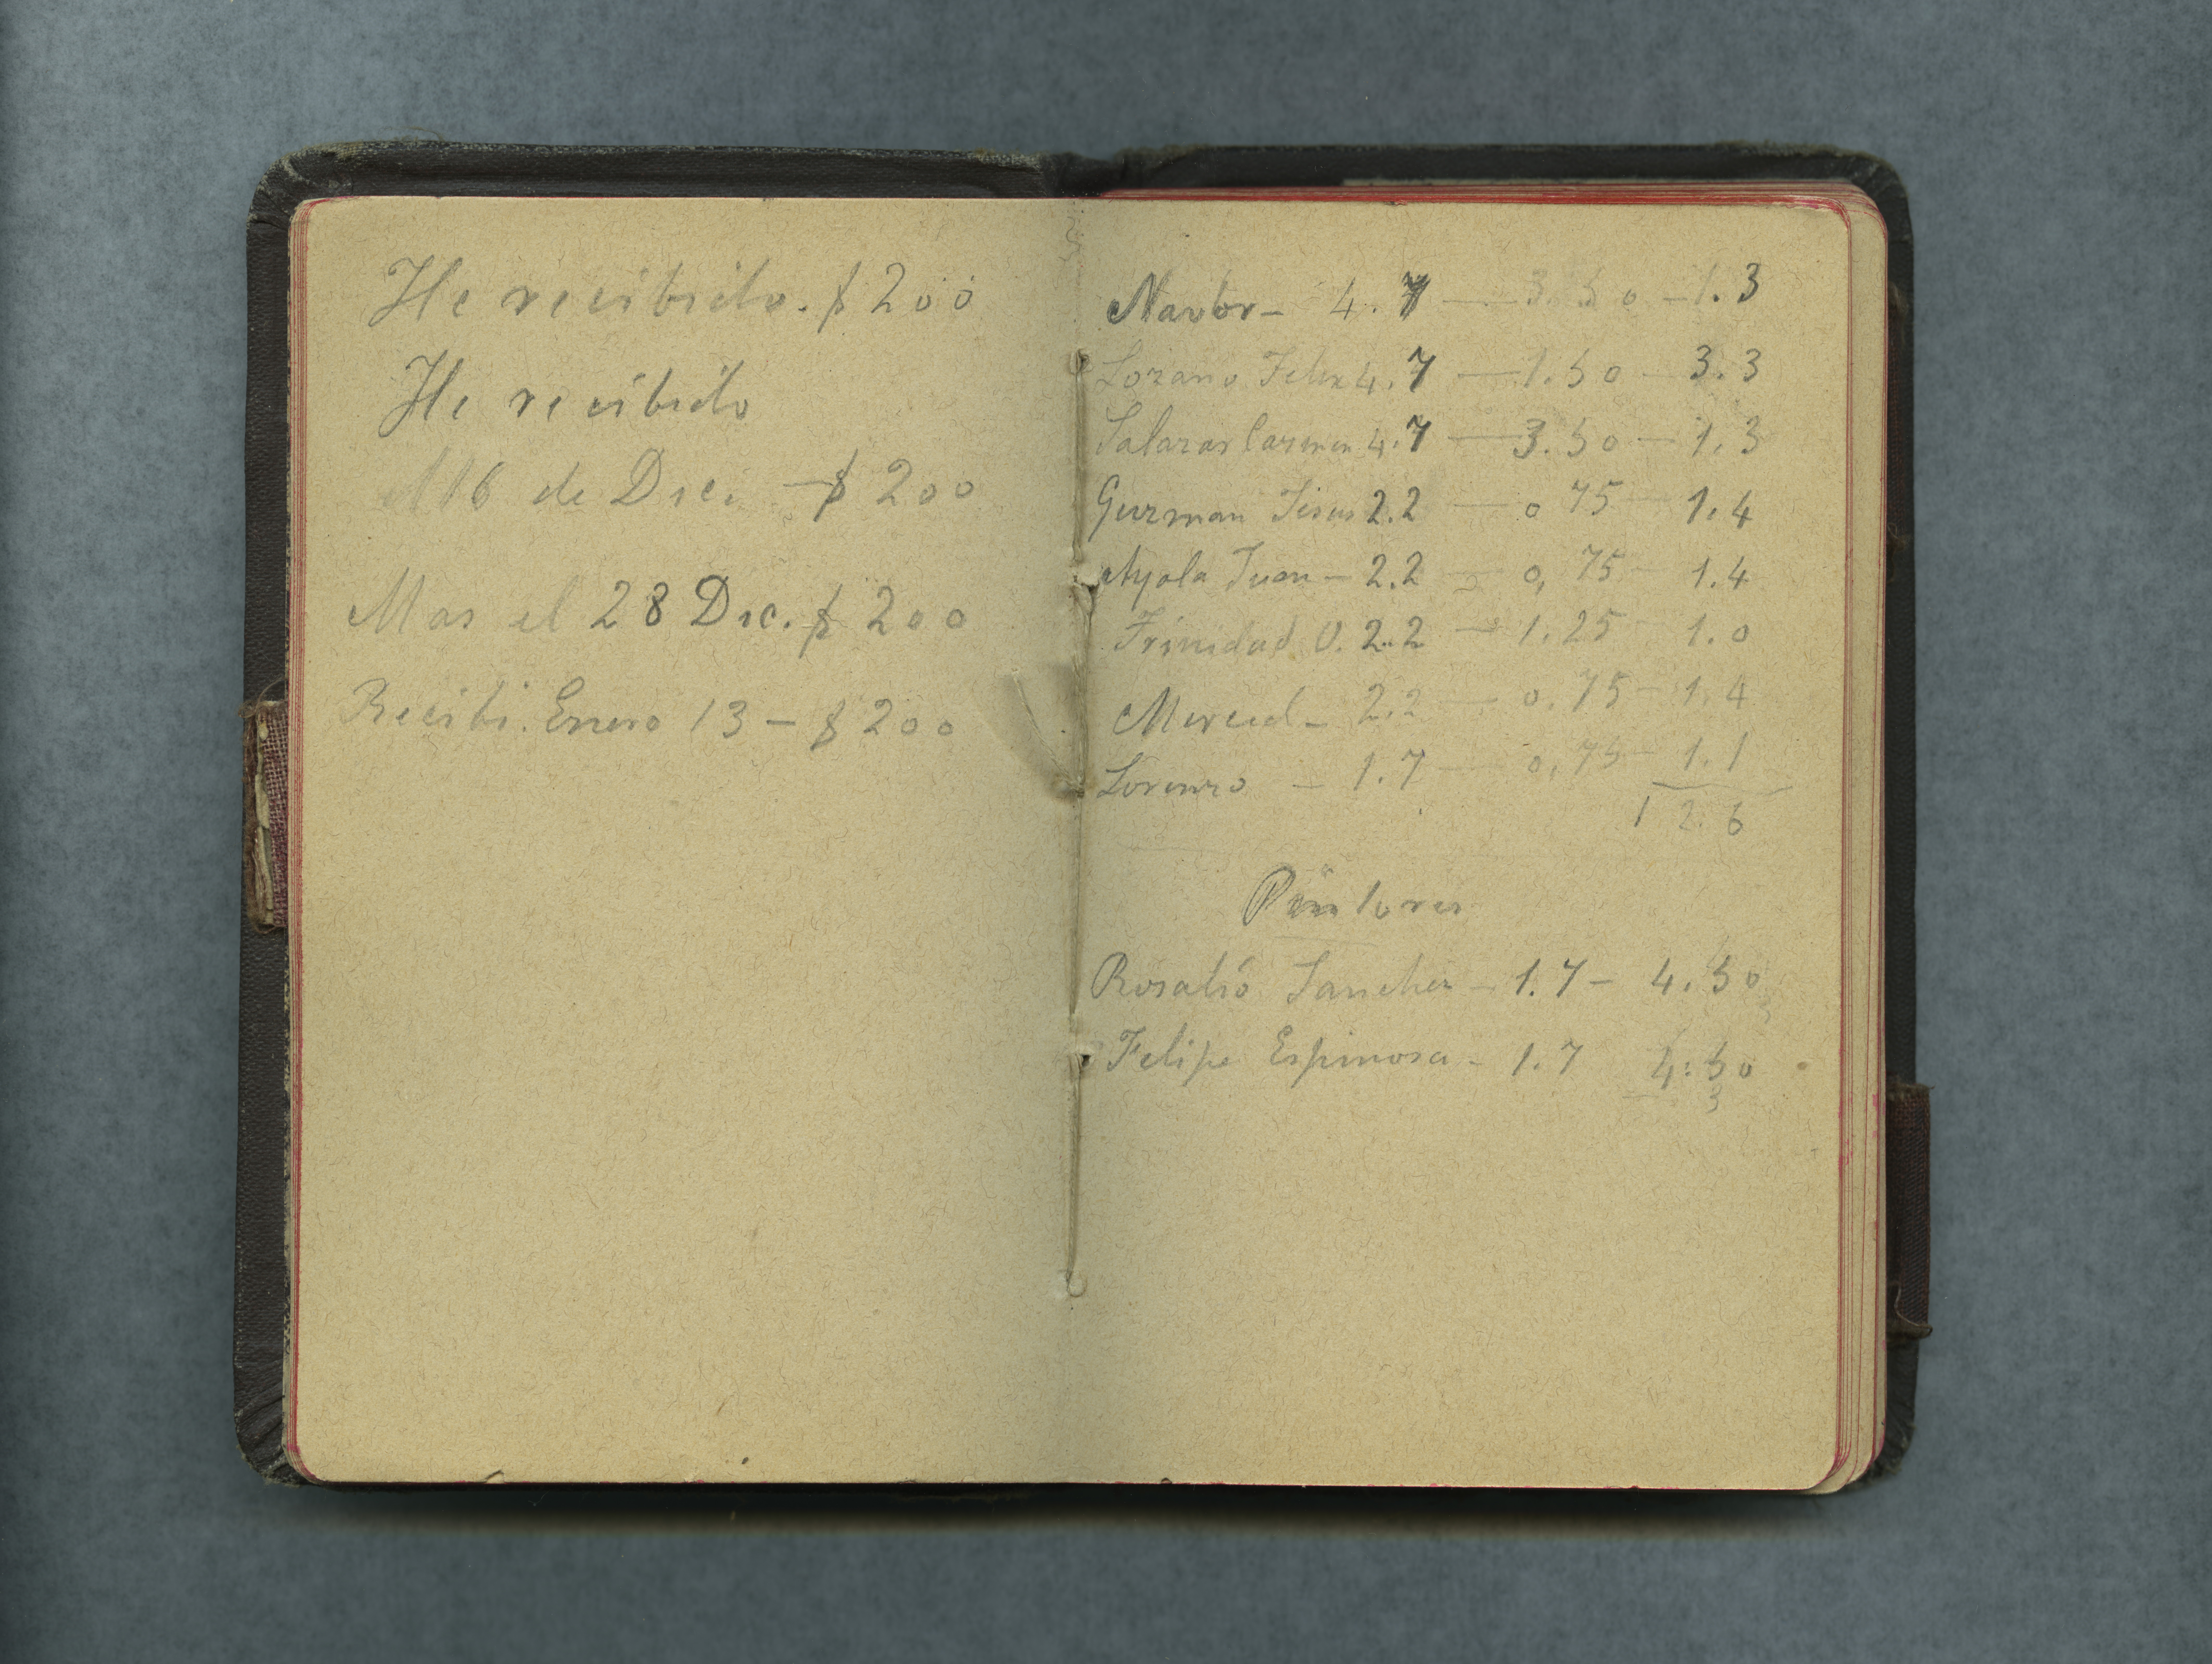 He recibido. $ 200
He recibido
Al 16 de Dic. - $ 200
Mas el 28 Dic. $ 200
Recibi. Enero 13 - $ 200
Navor - 4.7 — 3.50 - 1.3
Lozano Felix 4.7 — 1.50 - 3.3
Salazar Carmen 4.7 — 3.50 - 1.3
Guzman Jesus 2.2 — 0 75 - 1.4
Ayala Juan - 2.2 — 0, 75 - 1.4
Trinidad O. 2.2 — 1.25 - 1.0
Merced - 2.2 — 0.75 - 1.4
Lorenzo - 1.7 — 0,75 - 1.1
12.6
Pintores
Rosalió Sanchez - 1.7 - 4.50
Felipe Espinosa - 1.7 4.50
3